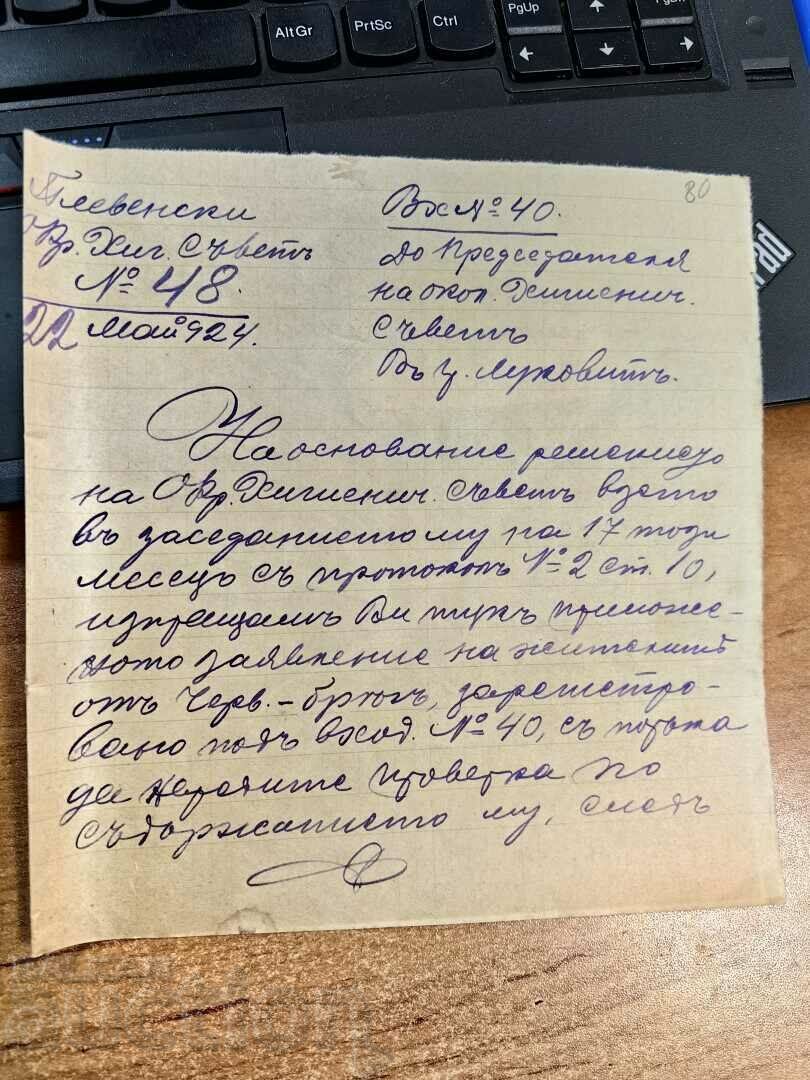 AltGr
PrtSc
Ctrl
PgUp
PgDn
80
Плевенски
Окр. Хиг. Съветъ
№ 48.
22 Май 924.
Вх № 40.
До Председателя
на окол. Хигиенич.
Съветъ
Въ гр. Луковитъ.
На основание решението
на Окр. Хигиенич. Съветъ взето
въ заседанието му на 17 того
месецъ съ протоколъ № 2 ст. 10,
изпращамъ Ви тукъ приложе-
ното заявление на жителитѣ
отъ Черв.-брегъ, зарегистро-
вано подъ вход. № 40, съ молба
да наредите проверка по
съдържанието му, следъ